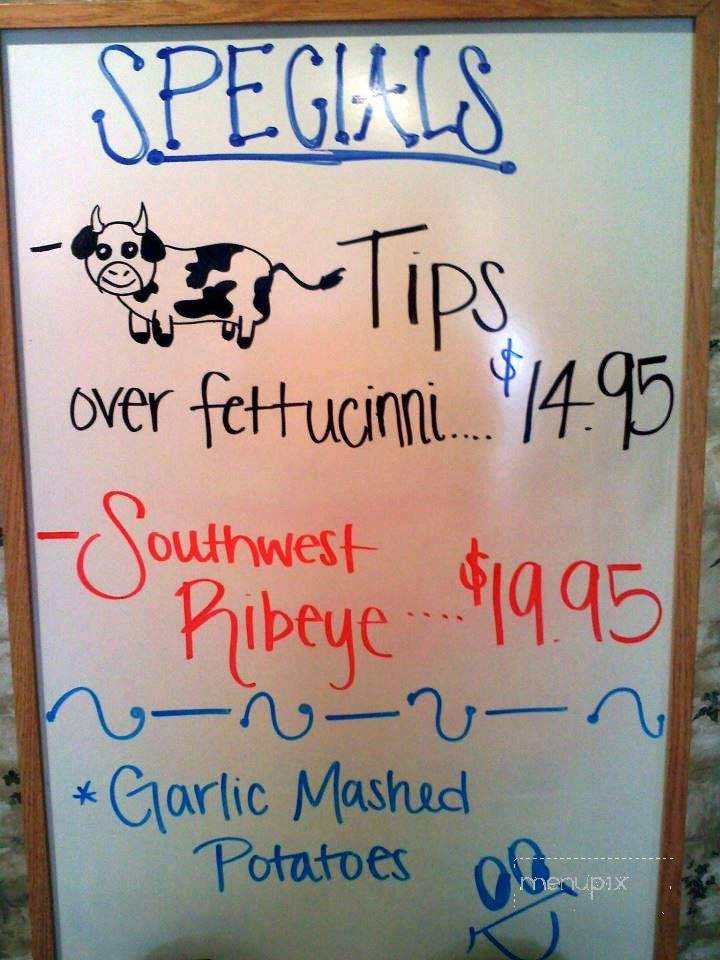 SPECIALS
- Tips
over fettucinni.... $14.95
- Southwest
Ribeye .... $19.95
* Garlic Mashed
Potatoes
menupix